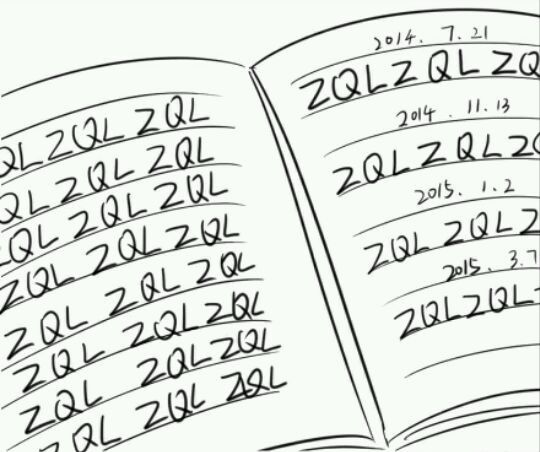 QL ZQL ZQL
QL ZQL ZQL
ZQL ZQL ZQL
ZQL ZQL ZQL
ZQL ZQL ZQL
ZQL ZQL ZQL
ZQL ZQL ZQL
ZQL ZQL ZQL
2014. 7. 21
ZQL Z QL ZQ
2014. 11. 13
ZQL Z QL ZQ
2015. 1. 2
ZQL ZQL Z
2015. 3. 7
ZQL ZQL